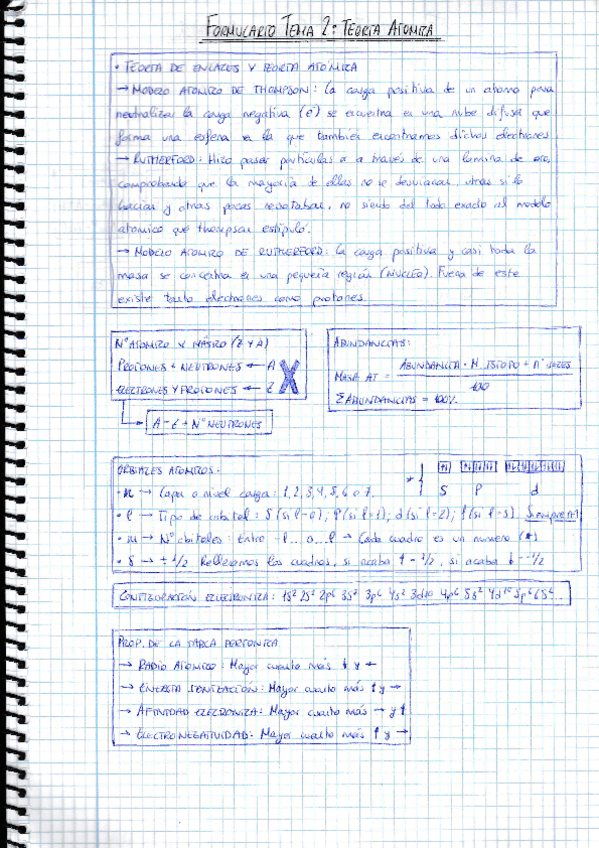 FORMULARIO TEMA 2: TEORÍA ATOMICA
• TEORIA DE ENLACES Y TEORIA ATOMICA
→ MODELO ATOMICO DE THOMPSON: La carga positiva de un atomo para
neutralizar la carga negativa (e⁻) se encuentra en una nube difusa que
forma una esfera en la que también encontramos dichos electrones
→ RUTHERFORD: Hizo pasar partículas α a través de una lamina de oro,
comprobando que la mayoría de ellas no se desviaban, otras si lo
hacían y otras pocas rebotaban, no siendo del todo exacto al modelo
atomico que thompson estipuló.
→ MODELO ATOMICO DE RUTHERFORD: La carga positiva y casi toda la
masa se concentra en una pequeña región (NUCLEO). Fuera de este
existe tanto electrones como protones.
Nº ATOMICO Y MÁSICO (Z Y A)
PROTONES + NEUTRONES ← A
ELECTRONES Y PROTONES ← Z
X
A = Z + Nº NEUTRONES
ABUNDANCIAS:
MASA AT =
ABUNDANCIA · M
100
Σ ABUNDANCIAS = 100%
ORBITALES ATOMICOS.
S P d
• n → Capa o nivel carga: 1, 2, 3, 4, 5, 6 o 7.
• l → Tipo de orbital: S (si l=0), P (si l=1), d (si l=2); f (si l=3).
• m → Nº orbitales: Entre -l...0...l → Cada cuadro es un numero (*)
• s → ± 1/2 Rellenamos los cuadros, si acaba ↑ = 1/2, si acaba ↓ = -1/2
CONFIGURACIÓN ELECTRONICA: 1s² 2s² 2p⁶ 3s² 3p⁶ 4s² 3d10 4p⁶ 5s² 4d¹⁰ 5p⁶ 6s²...
PROP. DE LA TABLA PERIODICA
→ RADIO ATOMICO: Mayor cuanto más ↓ y ←
→ ENERGIA IONIZACIÓN: Mayor cuanto más ↑ y →
→ AFINIDAD ELECTRONICA: Mayor cuanto más → y ↑
→ ELECTRONEGATIVIDAD: Mayor cuanto más ↑ y →